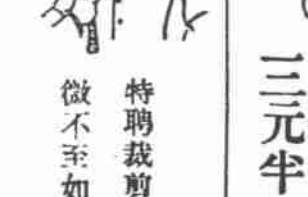 三元半
特聘裁剪
微不至如